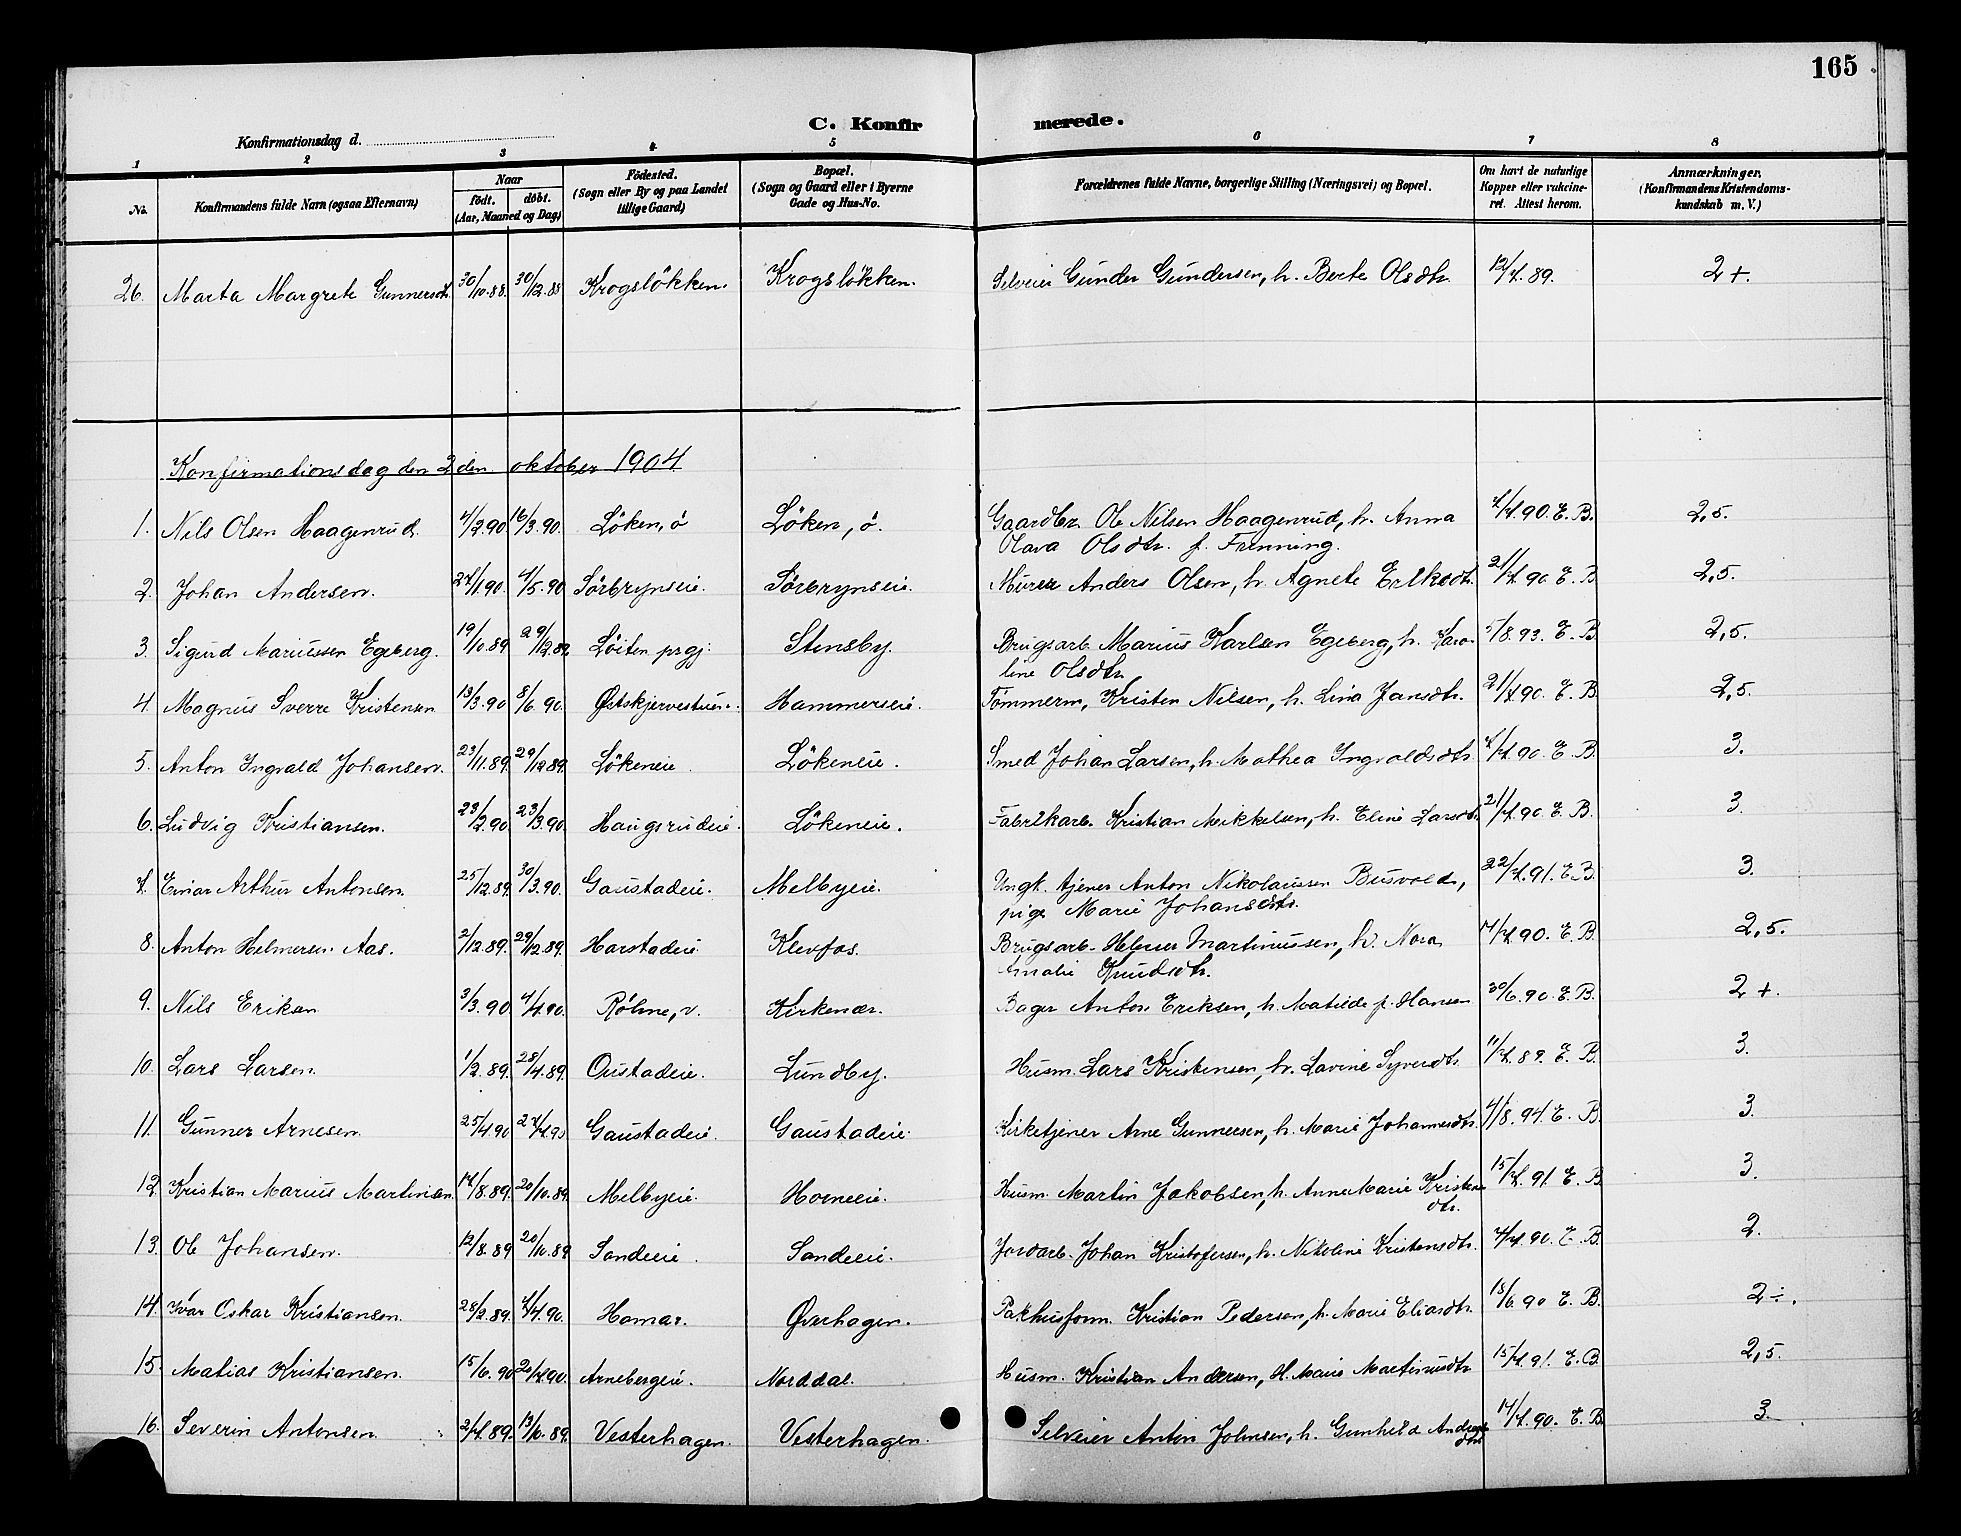 165
C. Konfirmerede.
Konfirmationsdag d.
1 2 3 4 5 6 7 8
No. Konfirmandens fulde Navn (ogsaa Efternavn) Naar født. døbt. (Aar, Maaned og Dag) Fødested. (Sogn eller By og paa Landet tillige Gaard) Bopæl. (Sogn og Gaard eller i Byerne Gade og Hus-No. Forældrenes fulde Navne, borgerlige Stilling (Næringsvei) og Bopæl. Om havt de naturlige Kopper eller vakcineret. Attest herom. Anmærkninger. (Konfirmandens Kristendomskundskab m. V.)
26. Marta Margrete Gunnersdt. 30/10.88. 30/12.88 Krogsløkken. Krogsløkken. Selveier Gunder Gundersen, h. Berte Olsdtr. 12/7.89. 2+.
Konfirmationsdag den 2den oktober 1904
1. Nils Olsen Haagenrud. 4/2.90 16/3.90. Løken, ø Løken, ø. Gaardbr. Ole Nilsen Haagenrud, h. Anna 4/7.90. E. B. 2,5.
Olava Olsdtr. f. Frenning.
2. Johan Andersen. 27/1.90. 4/5.90 Sørbrynseie. Sørbrynseie. Murer Anders Olsen, h. Agnete Eriksdtr. 21/7.90 E. B 2,5.
3. Sigurd Mariussen Egeberg. 19/10.89 29/12.89. Løiten prgj. Stensby. Brugsarb. Marius Karlsen Egeberg, h. Karo- /8.93. E. B 2,5.
line Olsdtr
4. Magnus Sverre Kristensen 13/3.90 8/6.90. Østskjervestuen. Hammerseie. Tømmerm, Kristen Nilsen, h. Lina Jansdtr. 21/7.90. E. B. 2,5.
5. Anton Ingvald Johansen. 23/11.89. 29/12.89. Løkeneie. Løkeneie. Smed Johan Larsen, h. Mathea Ingvaldsdtr. 4/7.90. E. B. 3.
6. Ludvig Kristiansen. 23/2.90. 23/3.90. Haugsrudeie. Løkeneie. Fabrikarb. Kristian Mikkelsen, h. Eline Larsdtr. 21/7.90. E. B. 3.
7. Einar Arthur Antonsen. 25/12.89. 30/3.90. Gaustadeie. Melbyeie. Ungk. tjener Anton Nikolaussen Busvold, 22/7.91. E. B. 3.
pige Marie Johansdtr.
8. Anton Helmersen Aas. 2/12.89. 29/12.89. Harstadeie Klevfos. Brugsarb. Helmer Martinussen, h. Nora 14/7.90. E. B. 2,5.
Amalie Knudsdtr.
9. Nils Eriksen 3/3.90 4/4.90. Røhne, v. Kirkenær. Bager Anton Eriksen, h. Matilde f. Hansen 30/6.90. E. B. 2+.
10. Lars Larsen. 1/2.89. 28/4.89. Oustadeie. Lundby. Husm. Lars Kristensen, h. Lavine Syversdtr. 11/7.89. E. B. 3.
11. Gunner Arnesen. 25/4.90 27/7.90 Gaustadeie. Gaustadeie. Kirketjener Arne Gunnersen, h. Marie Johannesdtr. 4/8.94. E. B. 3.
12. Kristian Marius Martinsen. 14/8.89. 20/10.89. Melbyeie. Horneeie. Husm. Martin Jakobsen, h. Anne Marie Kristens 15/7.91. E. B 3.
dtr.
13. Ole Johansen. 12/8.89. 20/10.89. Sandeeie. Sandeeie. Jordarb. Johan Kristofersen, h. Nikoline Kristensdtr. 4/7.90. E. B. 2.
14. Ivar Oskar Kristiansen. 28/2.89. 4/4.90. Hamar. Øverhagen. Pakhusform. Kristian Pedersen, h. Marie Eliasdtr. 18/6.90 E. B. 2÷.
15. Matias Kristiansen. 15/6.90 20/7.90. Arnebergeie. Norddal. Husm. Kristian Andersen, H. Marie Martinusdtr. 15/7.91. E. B. 2,5.
16. Severin Antonsen. 2/7.89. 13/10.89. Vesterhagen. Vesterhagen. Selveier Anton Johnsen, h. Gunhild Anders 14/7.90. E. B. 3.
dtr.